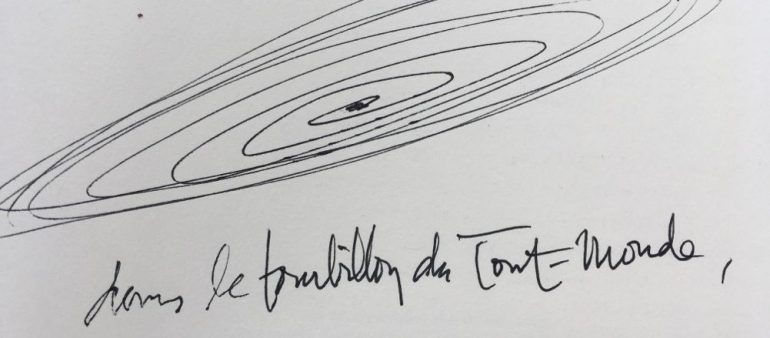 dans le tourbillon du Tout-Monde,